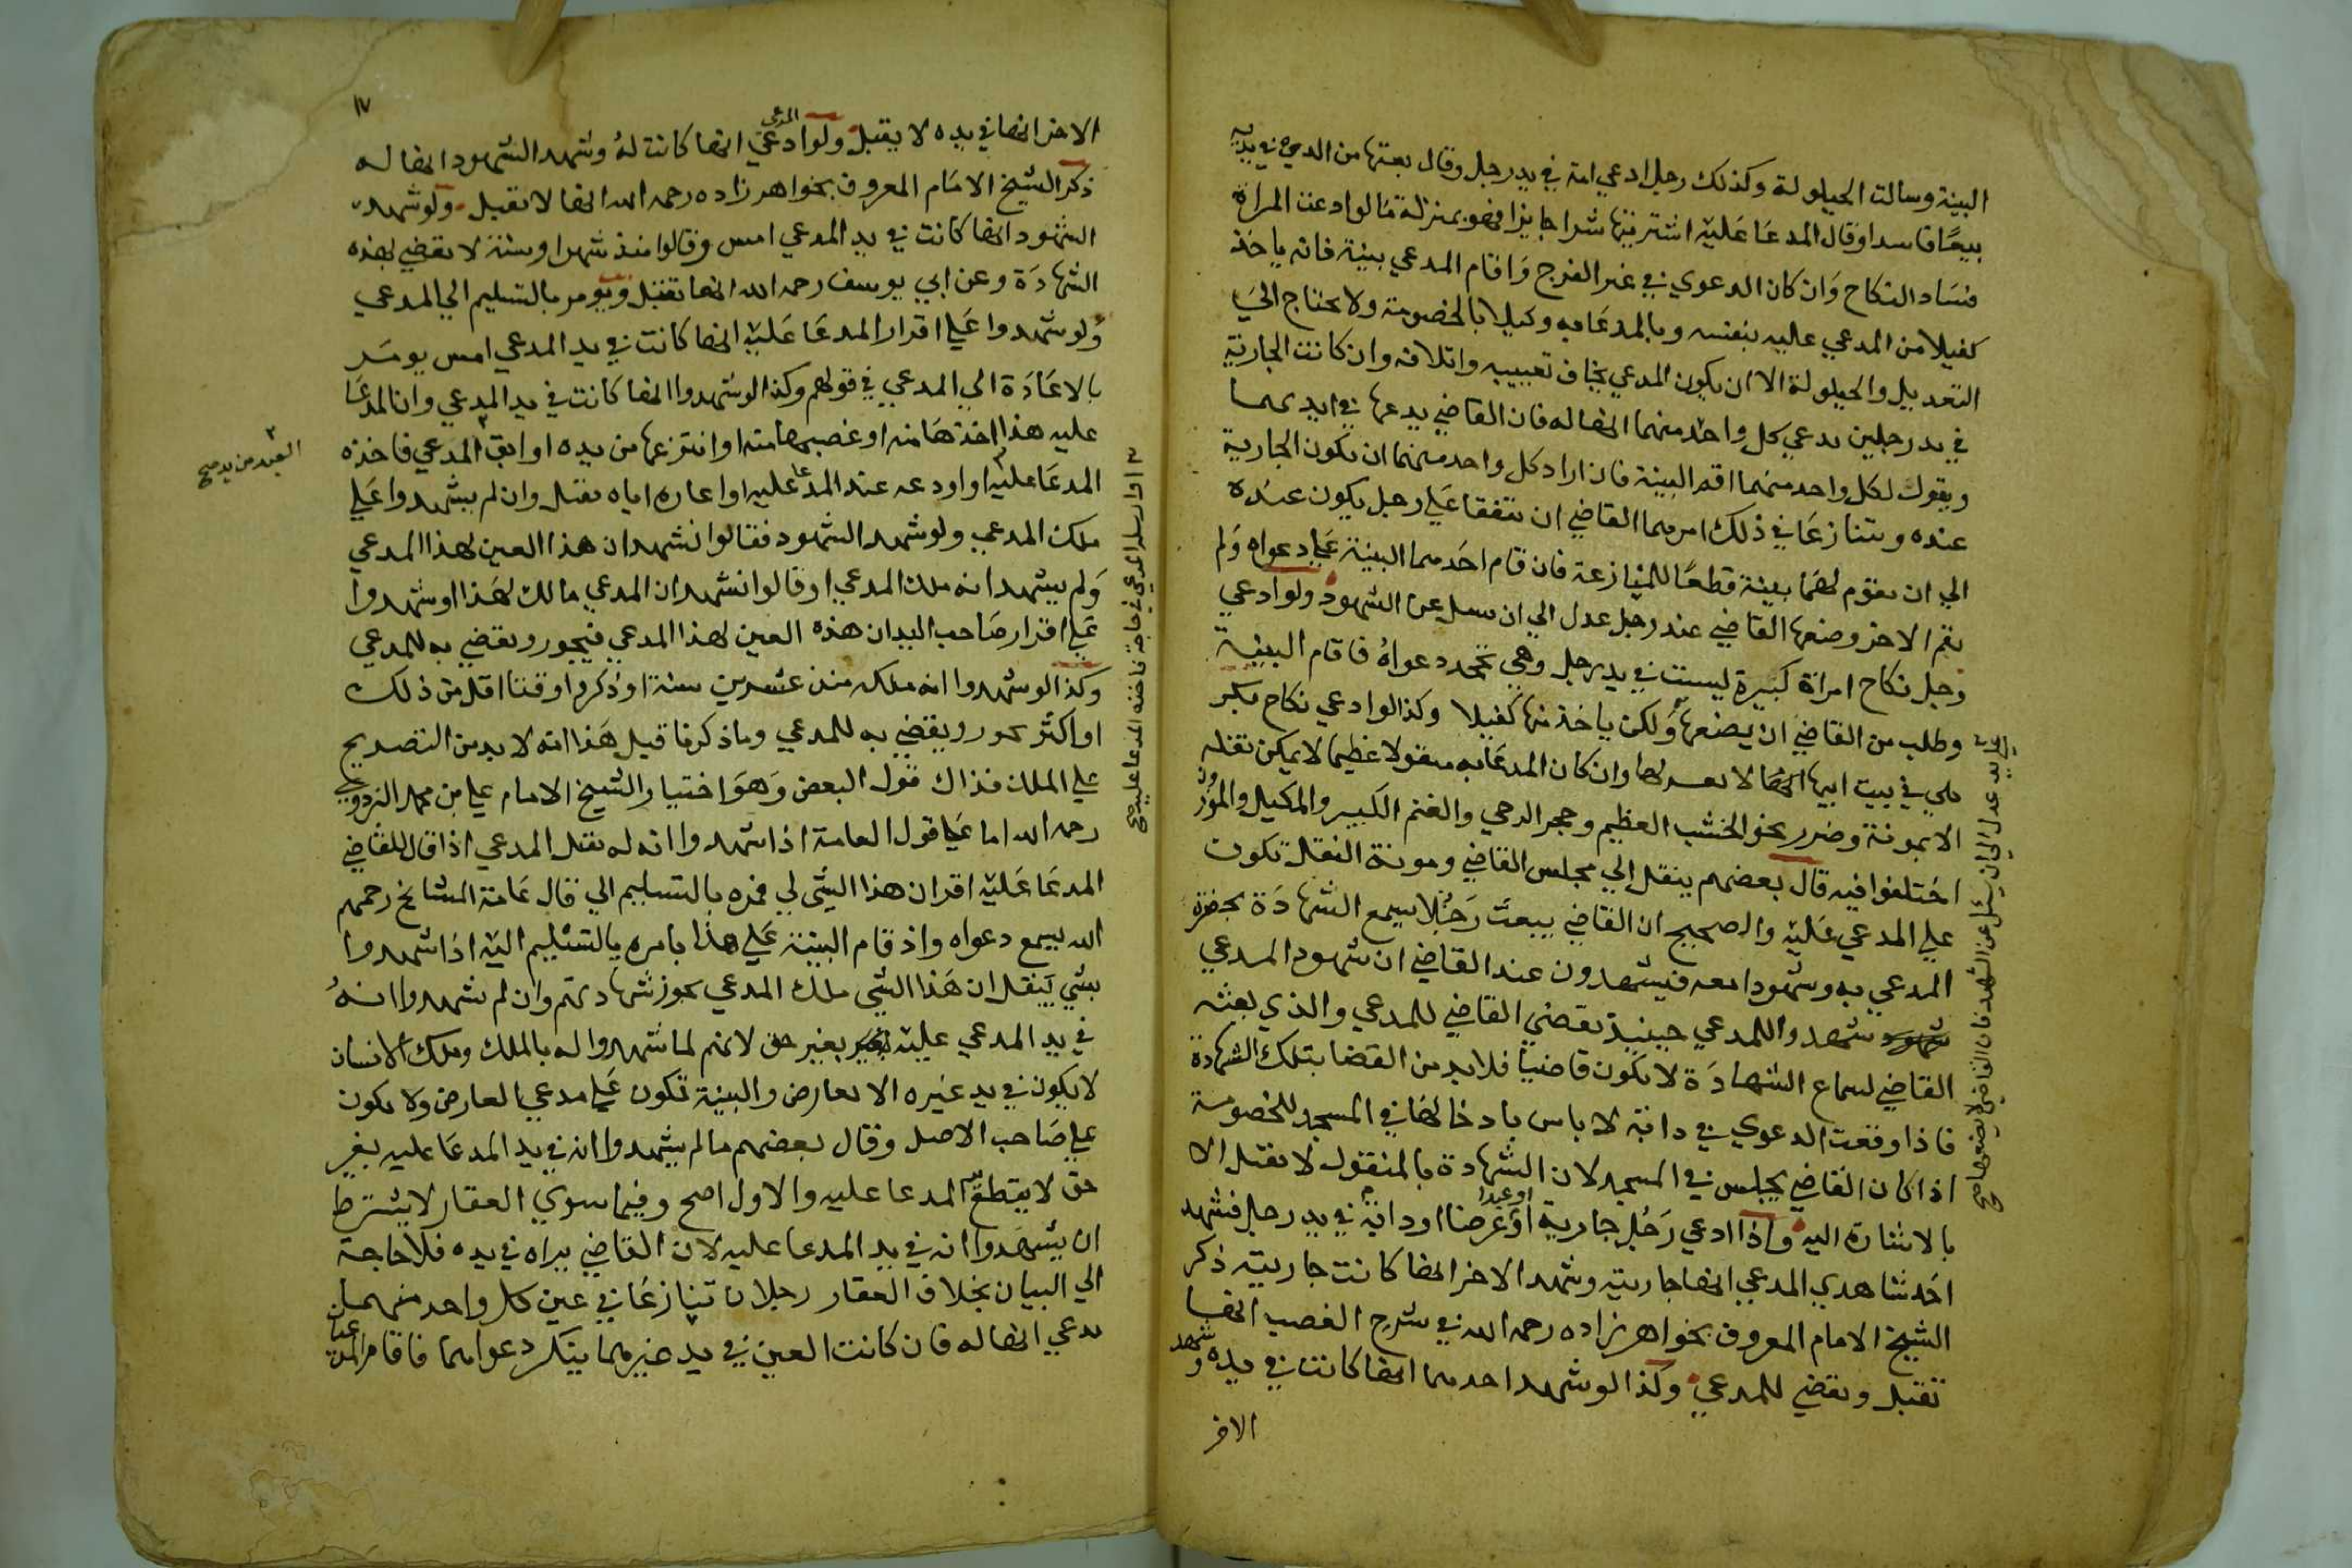 البينة وسالت الحيلولة وكذلك رجل ادعي امة في يد رجل وقال بعتها من الذي في يديه
بيعًا فاسدا وقال المدعَا عَليْه اشتريتها شرا جايزا فهو بمنزلة ما لو ادعت المراة
فسَاد النكاح وَان كان الدعوي في غير الفرج وَاقام المدعي بينة فانه ياخذ
كفيلا من المدعي عليه بنفسه وبالمدعَا به وكيلا بالخصومة ولا يحتاج اليَ
التعديل والحيلولة الا ان يكون المدعي يخاف تغييبه واتلافه وان كانت الجارية
في يد رجلين يدعي كل واحد منهما انها له فان القاضي يدعها في ايديهما
ويقول لكل واحد منهما اقم البينة فان اراد كل واحد منهما ان تكون الجارية
عنده ويتنازعَا في ذلك امرهما القاضي ان يتفقا عَلي رجل يكون عندَه
الي ان يقوم لهمَا بينة قطعًا للمنازعة فان قام احَدهما البينة عَلي دعواه وَلم
يقم الاخر وضعها القاضي عند رجل عدل الي ان يسل عن الشهود ولو ادعي
رجل نكاح امراة كَبيرة ليست في يد رجل وهي تجحد دعواهُ فاقام البينة
وطلب من القاضي ان يضعها وَلكن ياخذ منها كفيلا وكذا لو ادعي نكاح بكر
هي في بيت ابيها انهَا لا تعدل وان كان المدعَا به منقولا عظيما لا يمكن نقله
الا بمونة وضرر نحو الخشب العظيم وحجر الرحي والغنم الكَبير والمكيل والموزون
اختلفوا فيه قال بعضهم ينقل الي مجلس القاضي ومونة النقل تكون
علي المدعي عَليْه والصحيح ان القاضي يبعث رَجُلا يسمع الشهادَة بحضرة
المدعي به وشهودا معه فيشهدون عند القاضي ان شهود المدعي
شهدوا للمدعي حينيذ يقضي القاضي للمدعي والذي بعثه
القاضي لسماع الشهادَة لا يكون قاضيا فلا بد من القضا بتلك الشهادة
فاذا وقعت الدعوي في دابة لا باس بادخالها في المسجد للخصومة
اذا كان القاضي يجلس في المسجد لان الشهادة بالمنقول لا تقبل الا
بالاشارة اليه واذا ادعي رَجُل جارية او عبدا اوْ عَرضا او دابة في يد رجل فشهد
احَد شاهدي المدعي انها جاريته وشهد الاخر انها كانت جاريته ذكر
الشيخ الامام المعروف بخواهر زاده رحمه الله في شرح الغصب انها
تقبل ويقضي للمدعي وكذا لو شهد احدهما انها كانت في يده وشهد
الاخر
عدل الي ان يسئل عن الشهود فان القاضي لا يضعها صح
١٧
الاخر انها في يده لا يقبل ولو ادعي المدعي انها كانت لهُ وشهد الشهود انها له
ذكر الشيخ الامَام المعروف بخواهر زاده رحمه الله انها لا تقبل ولو شهد
الشهود انها كانت في يد المدعي امس وقالوا منذ شهر او سنة لا يقضي بهذه
الشهادَة وعن ابي يوسف رحمه الله انها تقبل ويومر بالتسليم الي المدعي
وَلو شهدوا عَلي اقرار المدعَا عَليْه انها كانت في يد المدعي امس يومَر
بالاعَادَة الي المدعي في قولهم وكذا لو شهدوا انها كانت في يد المدعي وان المدعَا
عليه هذا اخذهَا منه او غصبها منه او انتزعها من يده او ابق المدعي فاخذه
المدعَا عليْه او اودعه عند المدعَا عليه او اعاره اياه تقبل وان لم يشهدوا عَلي
ملك المدعي ولو شهد الشهود فقالوا نشهد ان هذا العين لهذا المدعي
وَلم يشهد انه ملك المدعي او قالوا نشهد ان المدعي مالك لهَذا او شهدوا
عَلي اقرار صَاحب اليد ان هذه العين لهذا المدعي فيجوز ويقضي به للمدعي
وكذا لو شهدوا انه ملكه منذ عشرين سنة او ذكروا وقتا اقل من ذلك
او اكثر يجوز ويقضي به للمدعي وما ذكرنا قيل هَذا انه لا بد من التصريح
علي الملك فذاك قول البعض وَهوَ اختيار الشيخ الامام علي بن محمد البزدوي
رحمه الله اما عَلي قول العامة اذا شهدوا انه له تقبل المدعي اذا قال للقاضي
المدعَا عَليْه اقر ان هذا الشي لي فمره بالتسليم الي قال عَامة المشايخ رحمهم
الله يسمع دعواه واذ قام البينة عَلي هذا يامره بالتسْليم اليْه اذا شهدوا
بشي يَنقل ان هَذا الشي ملك المدعي يجوز شهادتهم وان لم يشهدوا انهُ
في يد المدعي عليْه بغير حق لانهم لما شهدوا له بالملك وملك الانسان
لا يكون في يد غيره الا بعارض والبينة تكون عَلي مدعي العارض ولا يكون
علي صَاحب الاصل وقال بعضهم ما لم يشهدوا انه في يد المدعَا عليه بغير
حق لا يقطع المدعا عليه والاول اصح وفيما سوي العقار لا يشترط
ان يشهَدوا انه في يد المدعا عليه لان القاضي يراه في يده فلا حاجة
الي البيان بخلاف العقار رجلان تنازعَا في عين كل واحد منهما
يدعي انها له فان كانت العين في يد غيرهما ينكر دعواهما فاقام المدعيان
العبد من يد صح
او ارسله المدعي في حاجة فاخذه المدعا عليه صح